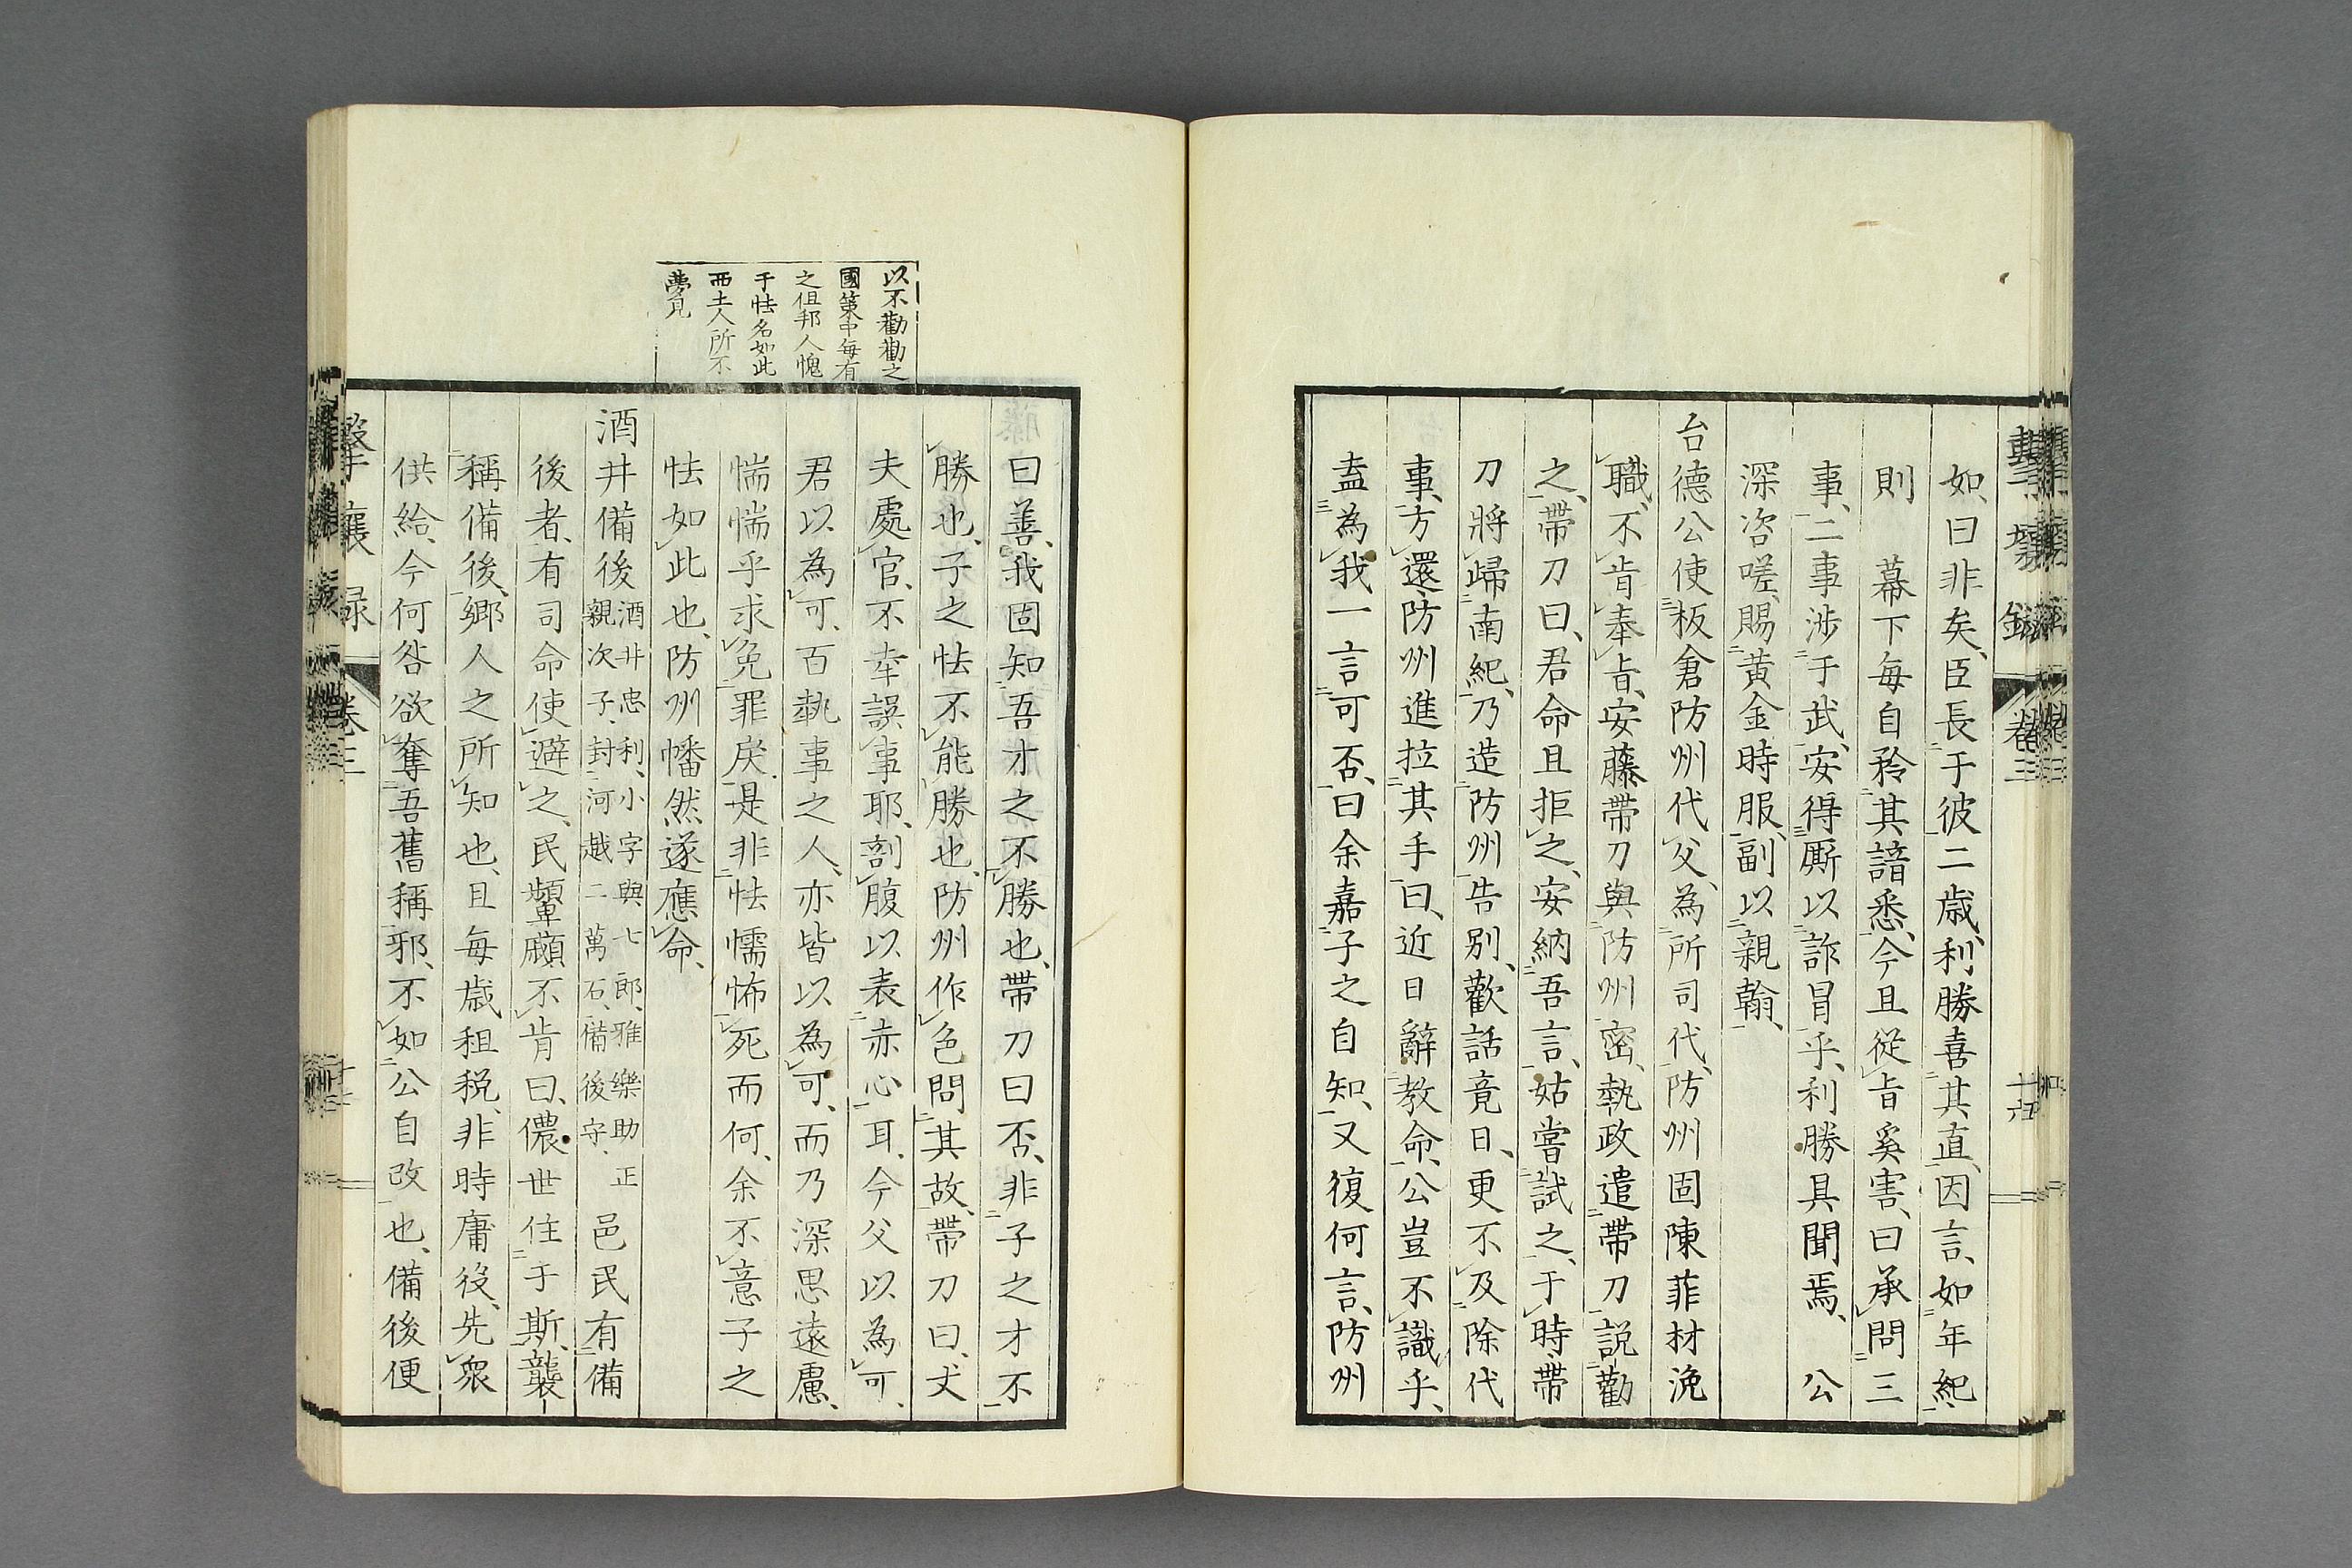 如、曰非矣、臣長于彼二歳、利勝喜其直、因言、如年紀、
則　幕下毎自矜其諳悉、今且従旨奚害、曰承問三
事、二事渉于武、安得厮以詐冒乎、利勝具聞焉、　公
深咨嗟、賜黄金時服、副以親翰、
台德公使板倉防州代父、為所司代、防州固陳菲材浼
職、不肯奉旨、安藤帯刀與防州密、執政遣帯刀説勸
之、帯刀曰、君命且拒之、安納吾言、姑嘗試之、于時帯
刀將歸南紀、乃造防州告別、歡話竟日、更不及除代
事、方還、防州進拉其手曰、近日辭教命、公豈不識乎、
盍為我一言可否、曰余嘉子之自知、又復何言、防州
曰善、我固知吾才之不勝也、帯刀曰否、非子之才不
勝也、子之怯不能勝也、防州作色問其故、帯刀曰、丈
夫處官、不幸誤事耶、剖腹以表赤心耳、今父以為可、
君以為可、百執事之人、亦皆以為可、而乃深思遠慮、
惴惴乎求免罪戻、是非怯懦怖死而何、余不意子之
怯如此也、防州幡然遂應命、
酒井備後酒井忠利、小字與七郎、雅樂助正親次子、封河越二萬石、備後守、邑民有備
後者、有司命使避之、民顰顣不肯曰、儂世住于斯、襲
稱備後、郷人之所知也、且毎歳租税、非時庸役、先衆
供給、今何咎欲奪吾舊稱邪、不如公自改也、備後便
以不勸勸之
國策中毎有
之但邦人愧
于怯名如此
西土人所不
夢見
卷三
卷三